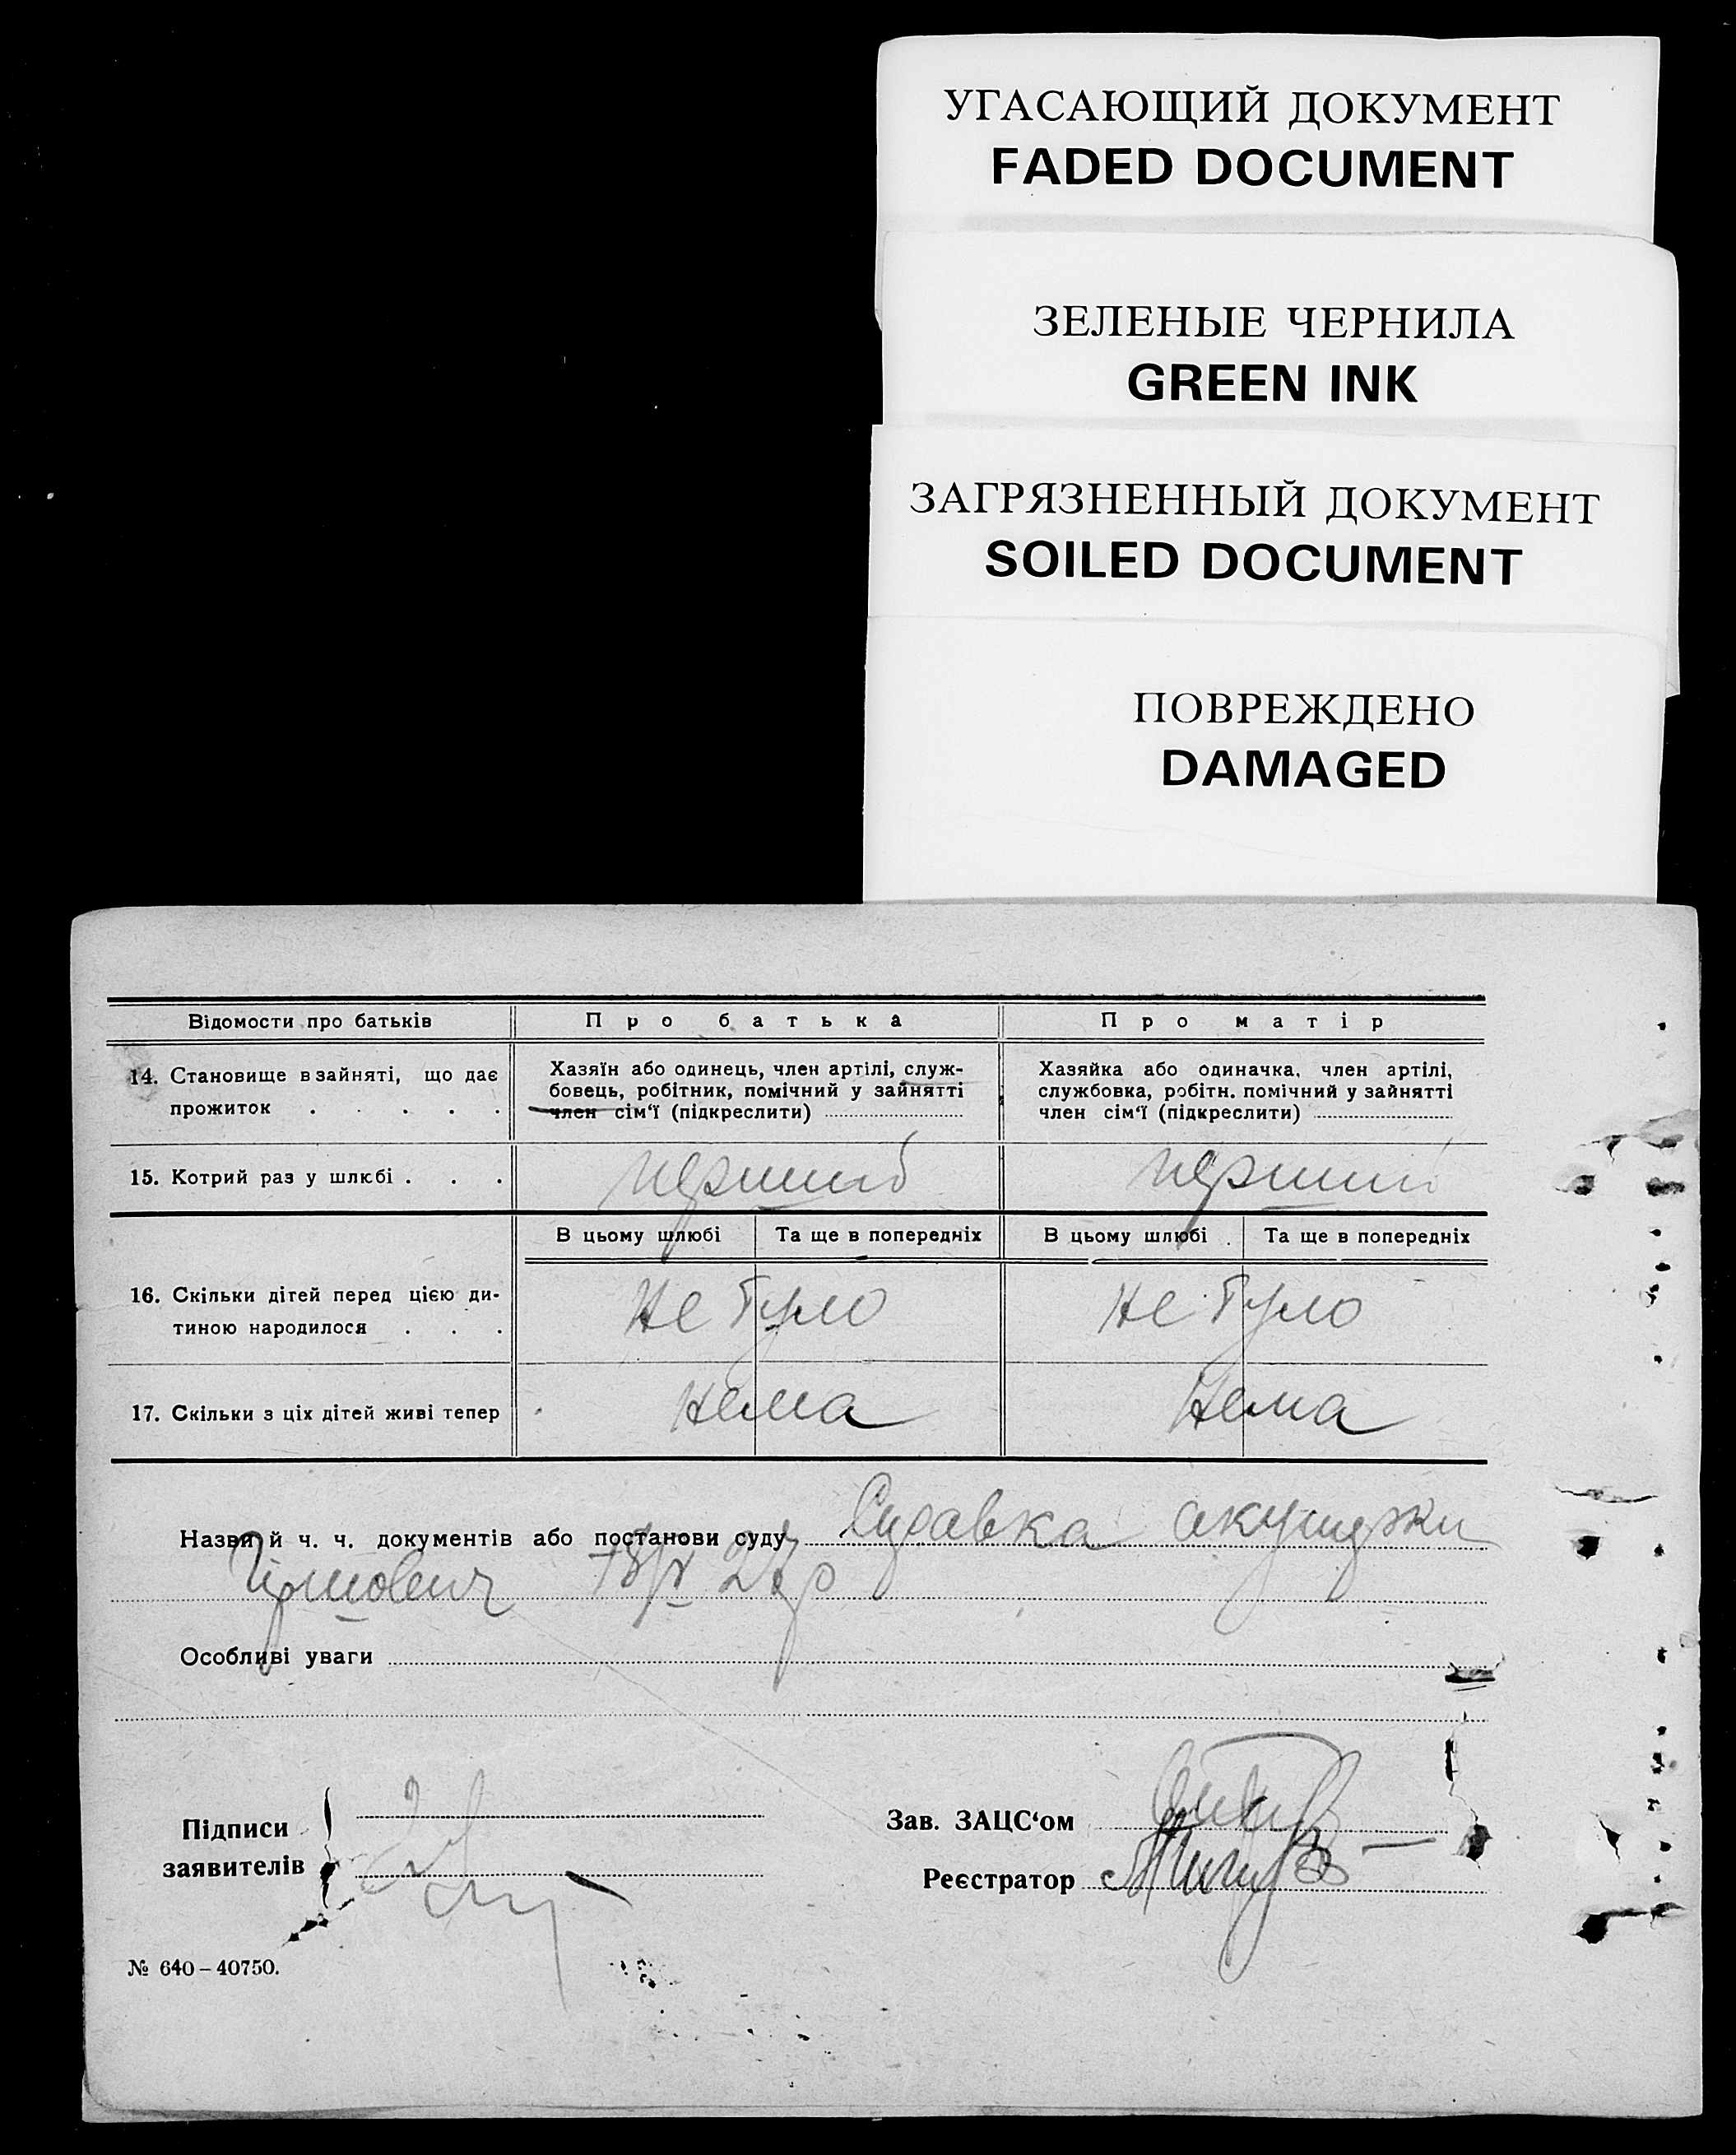 УГАСАЮЩИЙ ДОКУМЕНТ
FADED DOCUMENT
ЗЕЛЕНЫЕ ЧЕРНИЛА
GREEN INK
ЗАГРЯЗНЕННЫЙ ДОКУМЕНТ
SOILED DOCUMENT
ПОВРЕЖДЕНО
DAMAGED
Відомости про батьків Про батька Про матір
14. Становище в зайняті, що дає
прожиток . . . . .
Хазяїн або одинець, член артілі, служ-
бовець, робітник, помічний у зайнятті
член сім'ї (підкреслити)
Хазяйка або одиначка, член артілі,
службовка, робітн. помічний у зайнятті
член сім'ї (підкреслити)
15. Котрий раз у шлюбі . . . перший перший
В цьому шлюбі Та ще в попередніх В цьому шлюбі Та ще в попередніх
16. Скільки дітей перед цією ди-
тиною народилося . . .
не було не було
17. Скільки з ціх дітей живі тепер нема нема
Назви й ч. ч. документів або постанови суду Справка акушерки
18/IV 27 р
Особливі уваги
Підписи
заявителів
Зав. ЗАЦС'ом
Реєстратор
№ 640–40750.